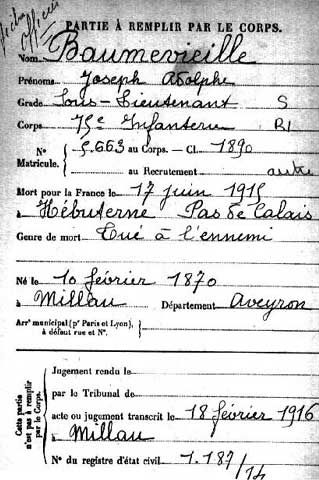 fiche
officier
PARTIE À REMPLIR PAR LE CORPS.
Nom Baumevieille
Prénoms Joseph Adolphe
Grade Sous-Lieutenant S
Corps 75e Infanterie RI
N° 5.663 au Corps. — Cl. 1890
Matricule. au Recrutement autre
Mort pour la France le 17 juin 1915
à Hébuterne Pas de Calais
Genre de mort Tué à l'ennemi
Né le 10 février 1870
à Millau Département Aveyron
Arrt municipal (pr Paris et Lyon),
à défaut rue et N°.
Cette partie n'est pas à remplir par le Corps.
Jugement rendu le
par le Tribunal de
acte ou jugement transcrit le 18 février 1916
à Millau
N° du registre d'état civil 1.187/14